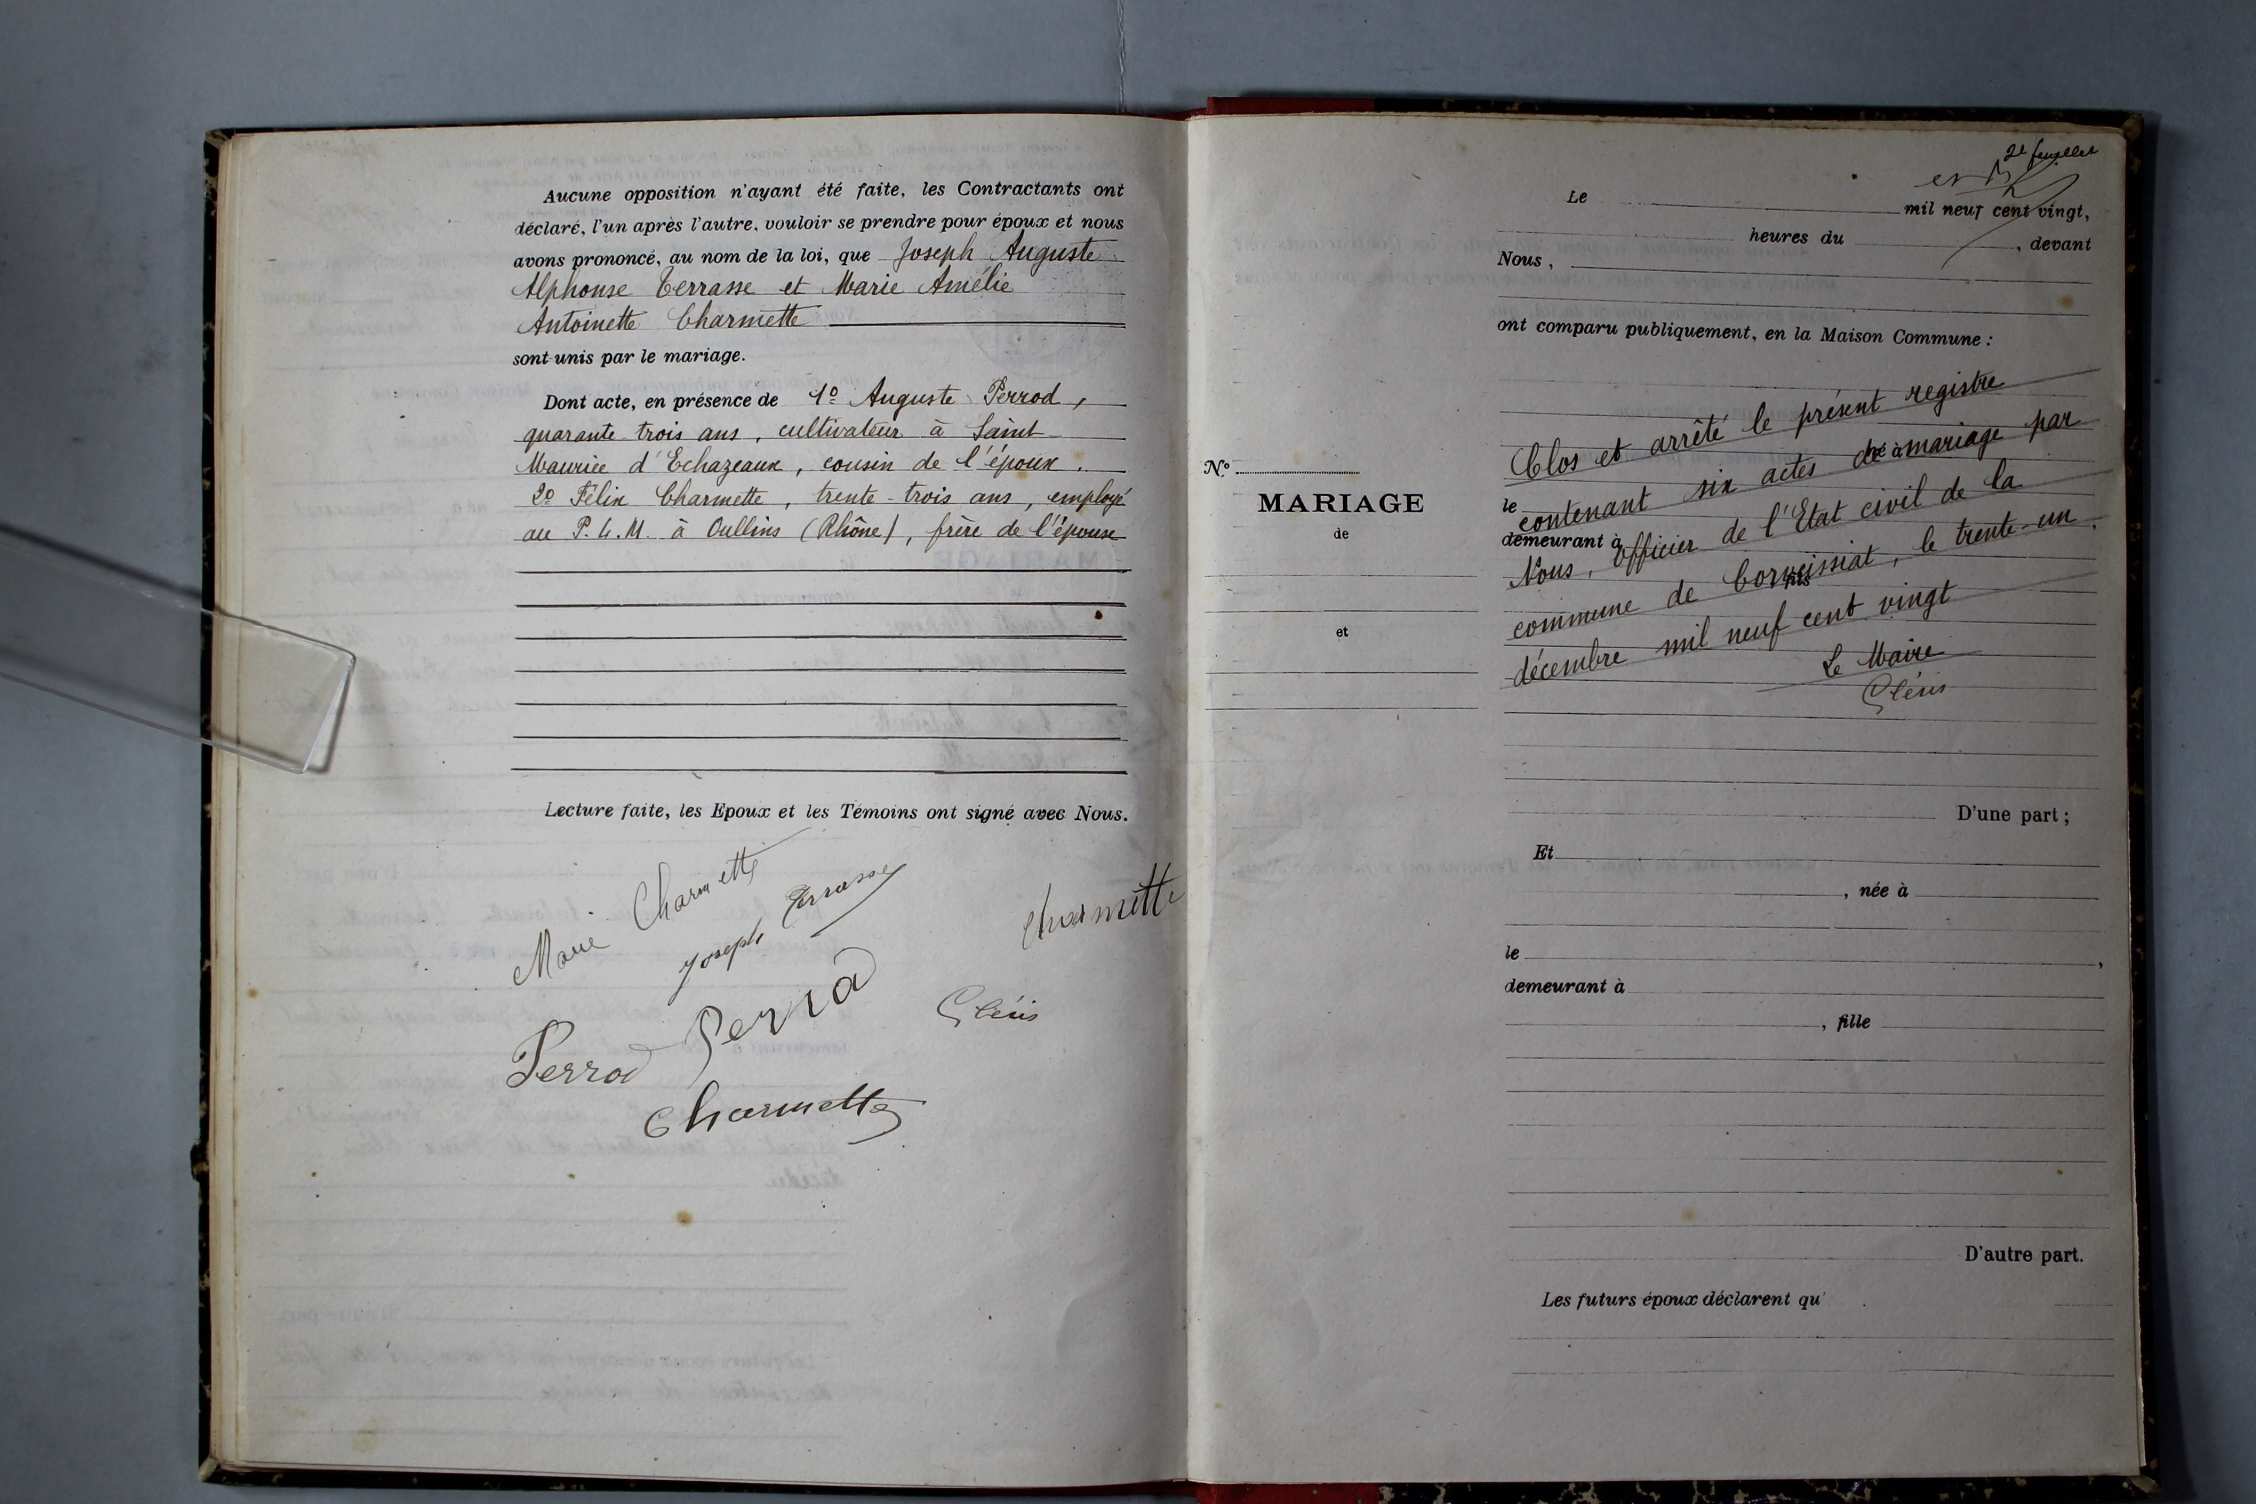 Aucune opposition n'ayant été faite, les Contractants ont
déclaré, l'un après l'autre, vouloir se prendre pour époux et nous
avons prononcé, au nom de la loi, que Joseph Auguste
Alphonse Terrasse et Marie Amélie
Antoinette Charmette
sont unis par le mariage.
Dont acte, en présence de 1º Auguste Perrod,
quarante-trois ans, cultivateur à Saint
Maurice d'Echazeaux, cousin de l'époux.
2º Félix Charmette, trente-trois ans, employé
au P.L.M. à Oullins (Rhône), frère de l'épouse
Lecture faite, les Epoux et les Témoins ont signé avec Nous.
Marie Charmette
Joseph Terrasse
Charmette
Perrod
Perrod
Charmette
2e feuillet
Le mil neuf cent vingt,
heures du , devant
Nous,
ont comparu publiquement, en la Maison Commune :
Clos et arrêté le présent registre
né à
contenant six actes de mariage par
le
demeurant à
Nous, Officier de l'Etat civil de la
commune de Corveissiat, le trente-un
fils
décembre mil neuf cent vingt
Le Maire
Nº
MARIAGE
de
et
D'une part ;
Et
, née à
le ,
demeurant à
, fille
D'autre part.
Les futurs époux déclarent qu'